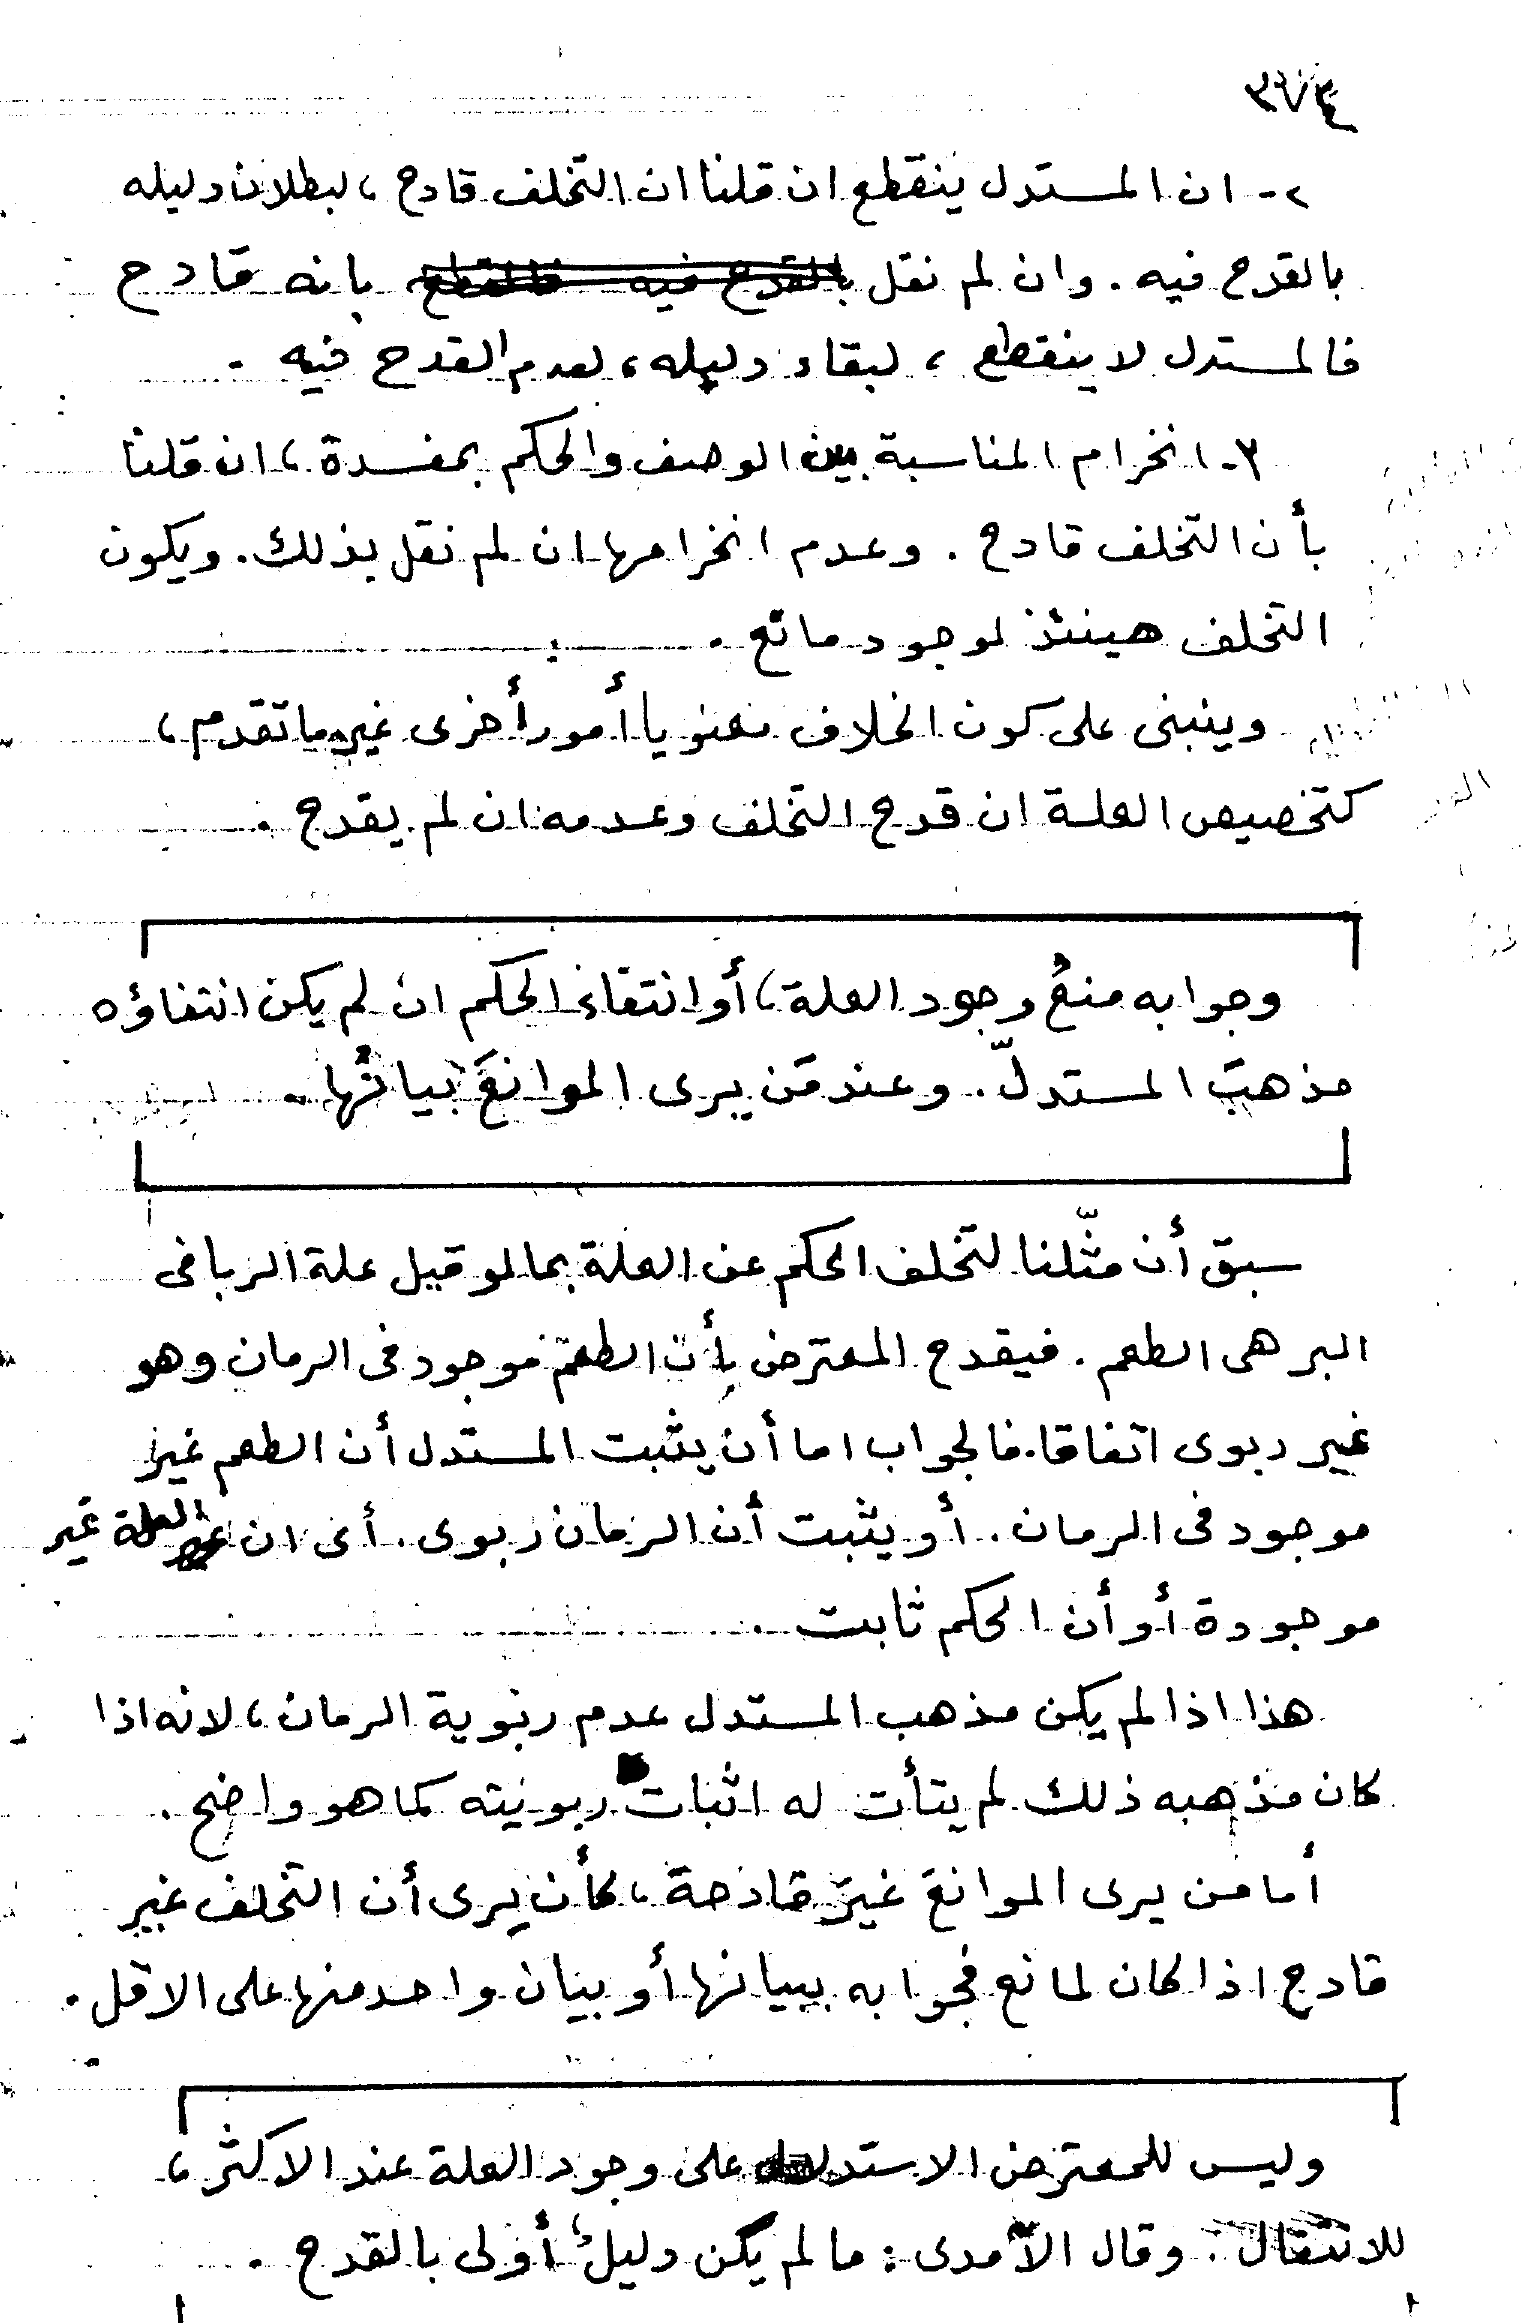 ٢- ان المستدل ينقطع ان قلنا ان التخلف قادح ، لبطلان دليله
بالقدح فيه . وان لم نقل بالقدح فيه بانه قادح
فالمستدل لا ينقطع ، لبقاء دليله ، لعدم القدح فيه .
٣- انخرام المناسبة بين الوصف والحكم بمفسدة ، ان قلنا
بأن التخلف قادح . وعدم انخرامها ان لم نقل بذلك . ويكون
التخلف حينئذ لوجود مانع .
وينبنى على كون الخلاف معنويا أمور أخرى غير ما تقدم ،
كتخصيص العلة ان قدح التخلف وعدمه ان لم يقدح .
وجوابه منعُ وجود العلة ، أو انتفاء الحكم ان لم يكن انتفاؤه
مذهبَ المستدلّ . وعند مَن يرى الموانعَ بيانُها .
سبق أن مثّلنا لتخلف الحكم عن العلة بما لو قيل علة الربا فى
البر هى الطعم . فيقدح المعترض بأن الطعم موجود فى الرمان وهو
غير ربوى اتفاقا . فالجواب اما أن يثبت المستدل أن الطعم غير
موجود فى الرمان . أو يثبت أن الرمان ربوى . أى ان العلة غير
موجودة أو أن الحكم ثابت .
هذا اذا لم يكن مذهب المستدل عدم ربوية الرمان ، لانه اذا
كان مذهبه ذلك لم يتأت له اثبات ربويته كما هو واضح .
أما من يرى الموانعَ غيرَ قادحة ، كأن يرى أن التخلف غير
قادح اذا كان لمانع فجوابه ببيانها أو بيان واحد منها على الاقل .
وليس للمعترض الاستدلال على وجود العلة عند الاكثر ،
للانتقال . وقال الآمدى : ما لم يكن دليلٌ أولى بالقدح .